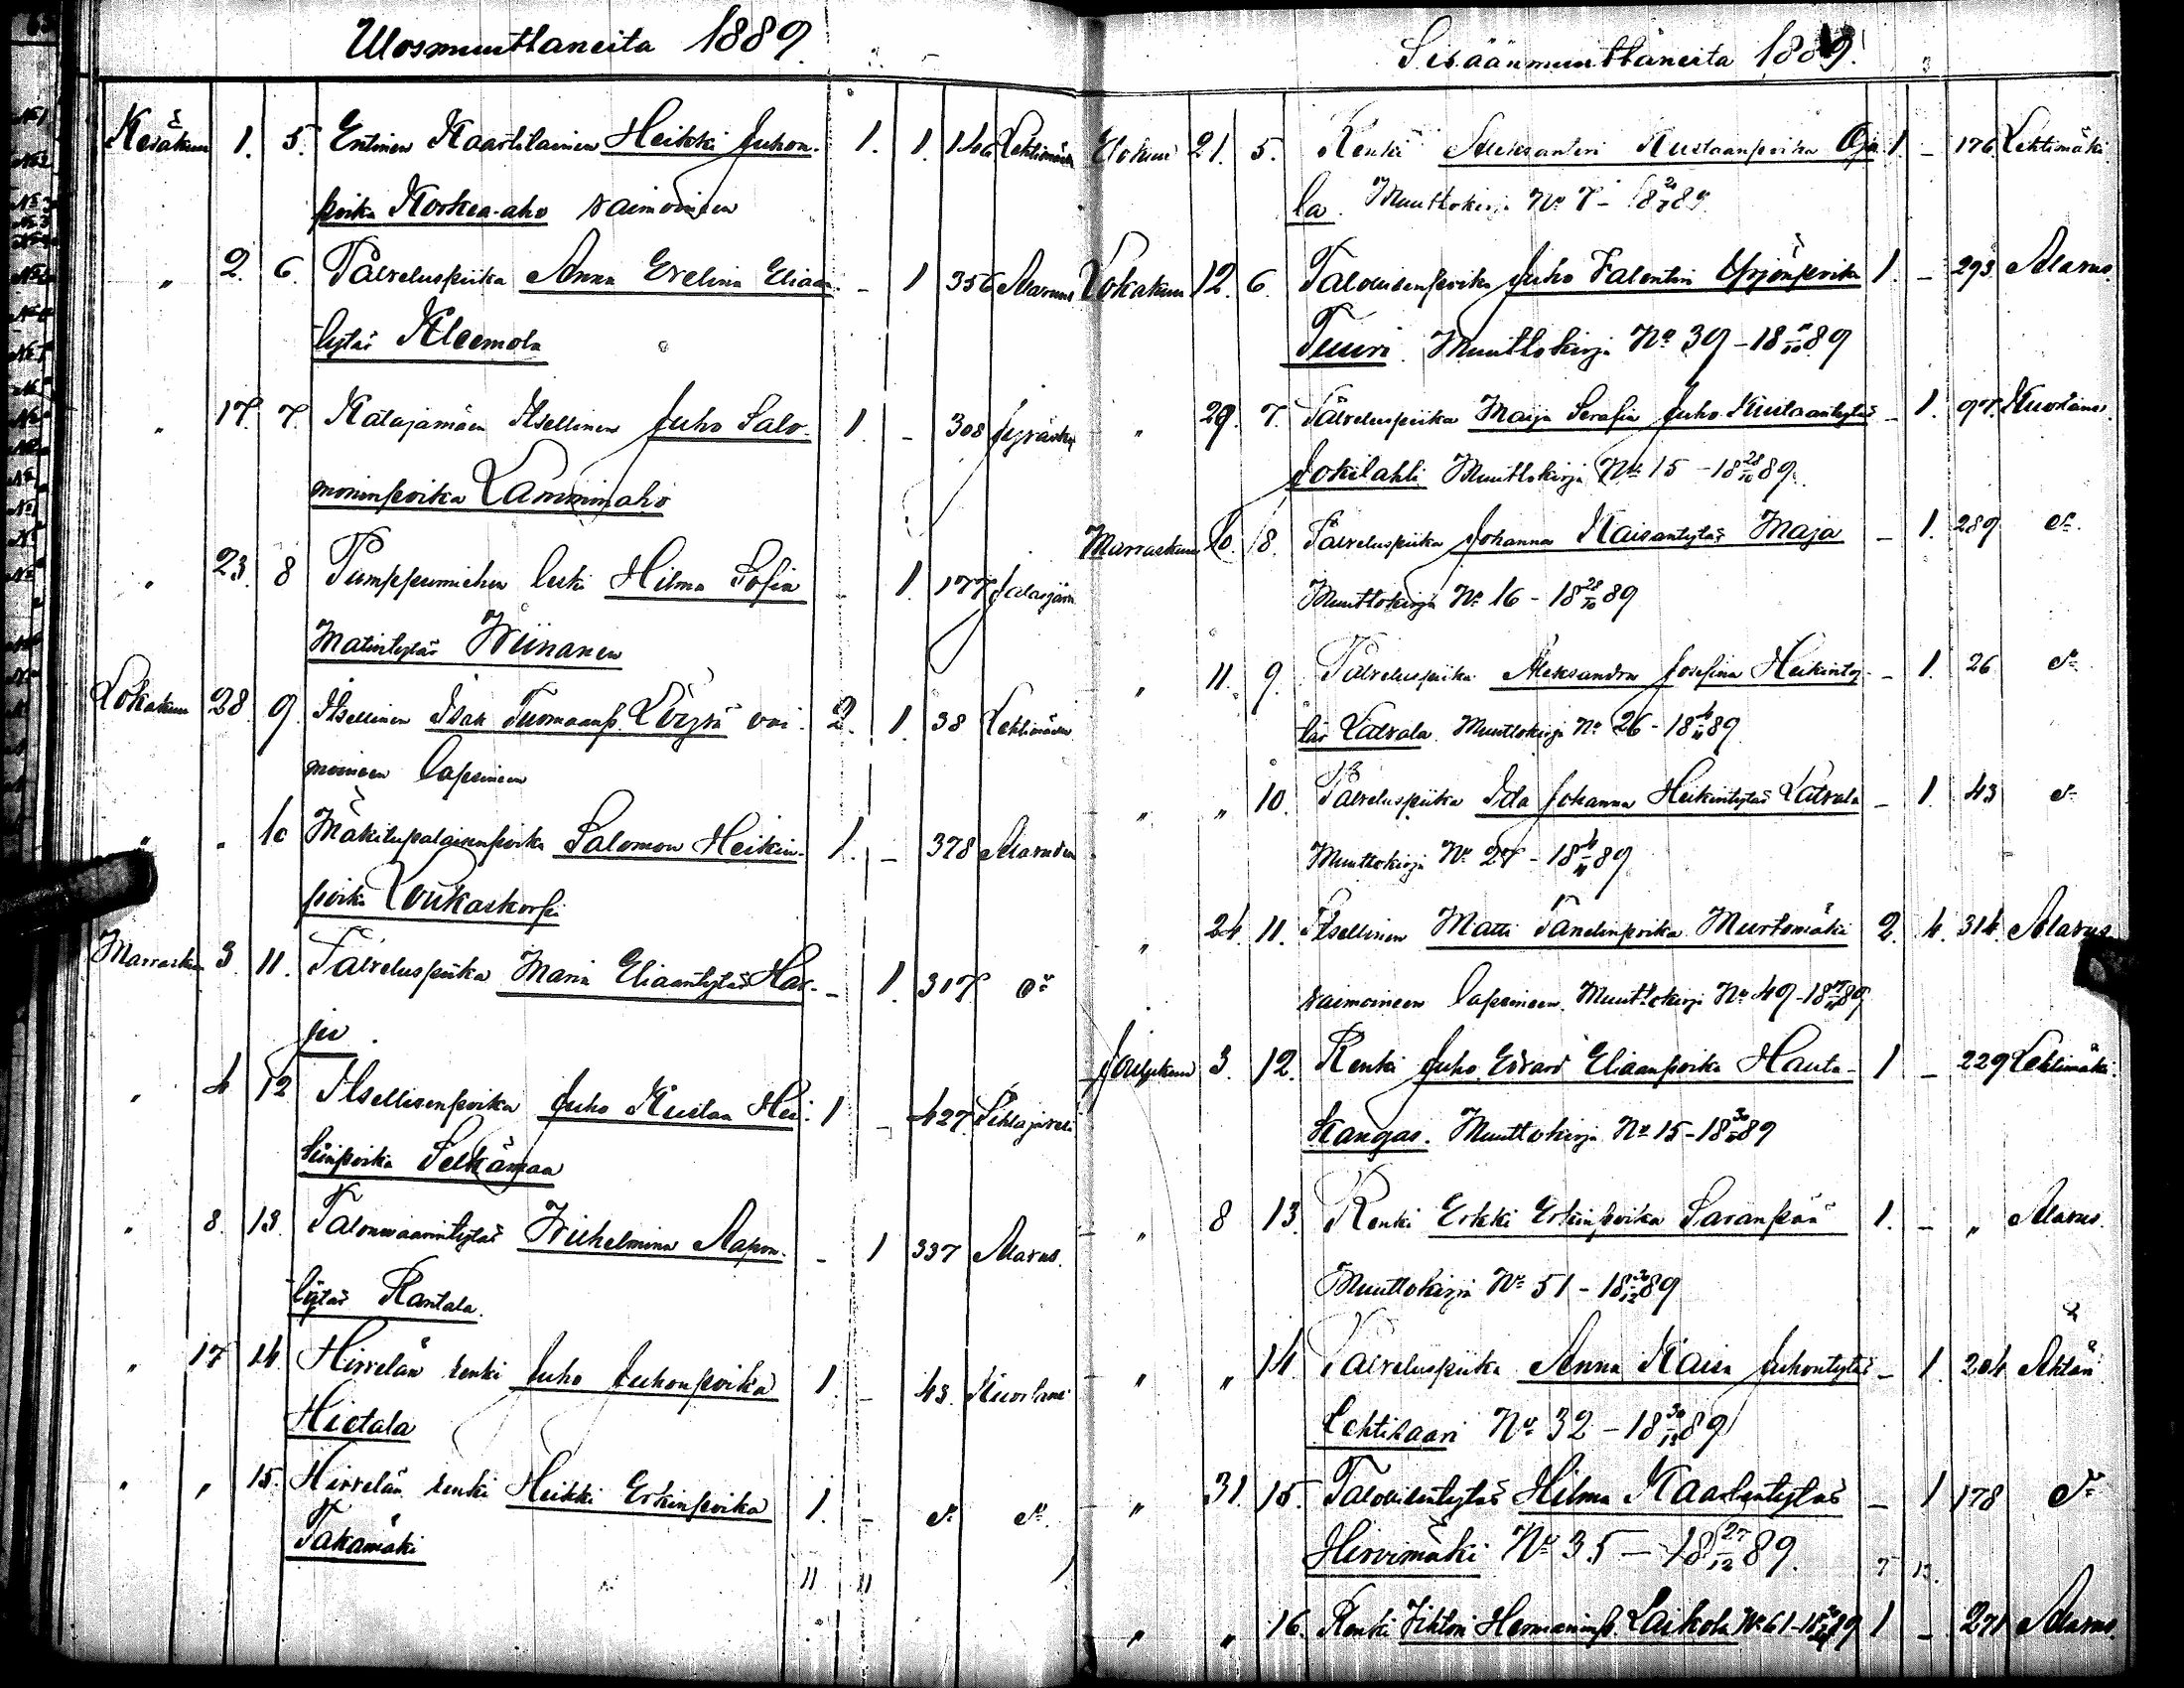 Ulosmuuttaneita 1889.
Kesäkuu 1. 5. Entinen Kaartilainen Heikki Juhon- 1. 1. 146 Lehtimäen
poika Korkea-aho vaimoineen
" 2. 6. Palveluspiika Anna Evelina Eliaan- - 1 356 Alavus
tytär Kleemola
" 17. 7. Katajamäen Itsellinen Juho Salo- 1. - 308
moninpoika Lamminaho
" 23. 8 Pumppumiehen leski Hilma Sofia - 1. 177 Jalasjärvi
Matintytär Wiinanen
Lokakuu 28. 9. Itsellinen Isak Tuomaanp. Löysä vai- 2. 1. 38 Lehtimäen
moineen lapsineen
" " 10 Mäkitupalaisenpoika Salomon Heikin- 1. - 378
poika Loukaskorpi
Marraskuu 3. 11. Palveluspiika Maria Eliaantytär Har- - 1. 317
ju.
" 4 12 Itsellisenpoika Juho Kustaa Hei- 1 - 427.
Selkämaa
" 8. 13. Talonvaarintytär Wilhelmina Aapon- - 1 337 Alavus.
tytär Rantala.
" 17 14. Hirvelän renki Juho Juhonpoika 1. - 43. Kuortane
Hietala
" " 15. Hirvelän renki Heikki Erkinpoika 1. -
Takamäki
11 11
Sisäänmuuttaneita 1889.
Elokuu 21. 5. Renki Aleksanteri Kustaanpoika Oja- 1. - 176. Lehtimäki
la. Muuttokirja No 7 - 18 89.
Lokakuu 12. 6. Talollisenpoika Juho Valentin Yrjönpoika 1. - 293 Alavus.
Tuuri. Muuttokirja No 39 - 18 89
" 29. 7. Palveluspiika Maija Serafia Juho Kustaantytär - 1. 97. Kuortane.
Jokilahti Muuttokirja No 15 - 18 28/10 89.
Marraskuu 10. 8. Palveluspiika Johanna Kaisantytär Maja - 1. 289
Muuttokirja No 16 - 18 28/10 89
" 11. 9. Palveluspiika Aleksandra Josefina Heikinty- - 1. 26
tär Latvala. Muuttokirja No 26 - 18 89.
" " 10. Palveluspiika Ida Johanna Heikintytär Latvala - 1. 43
Muuttokirja No 27 - 18 89.
" 24. 11. Itsellinen Matti Taneilinpoika Murtomäki 2. 4. 314. Alavus
vaimoineen lapsineen. Muuttokirja No 49 - 18 89
Joulukuu 3. 12. Renki Juho Edvard Eliaanpoika Hauta- 1 - 229 Lehtimäki.
kangas. Muuttokirja No 15 - 18 89
" 8 13. Renki Erkki Erkinpoika Saranpää 1. - " Alavus.
Muuttokirja No 51 - 18 89
" " 14. Palveluspiika Anna Kaisa Juhontytär - 1. 204 Ähtäri
Lehtisaari No 32 - 18 89
" 31. 15. Talollisentytär Hilma Kaarlentytär - 1 178
Hirvimäki No 35 - 18 27/12 89.
7 13.
" " 16. Renki Vihtori Hermaninp. Laikola No 61 - 18 89 1 - 271 Alavus.